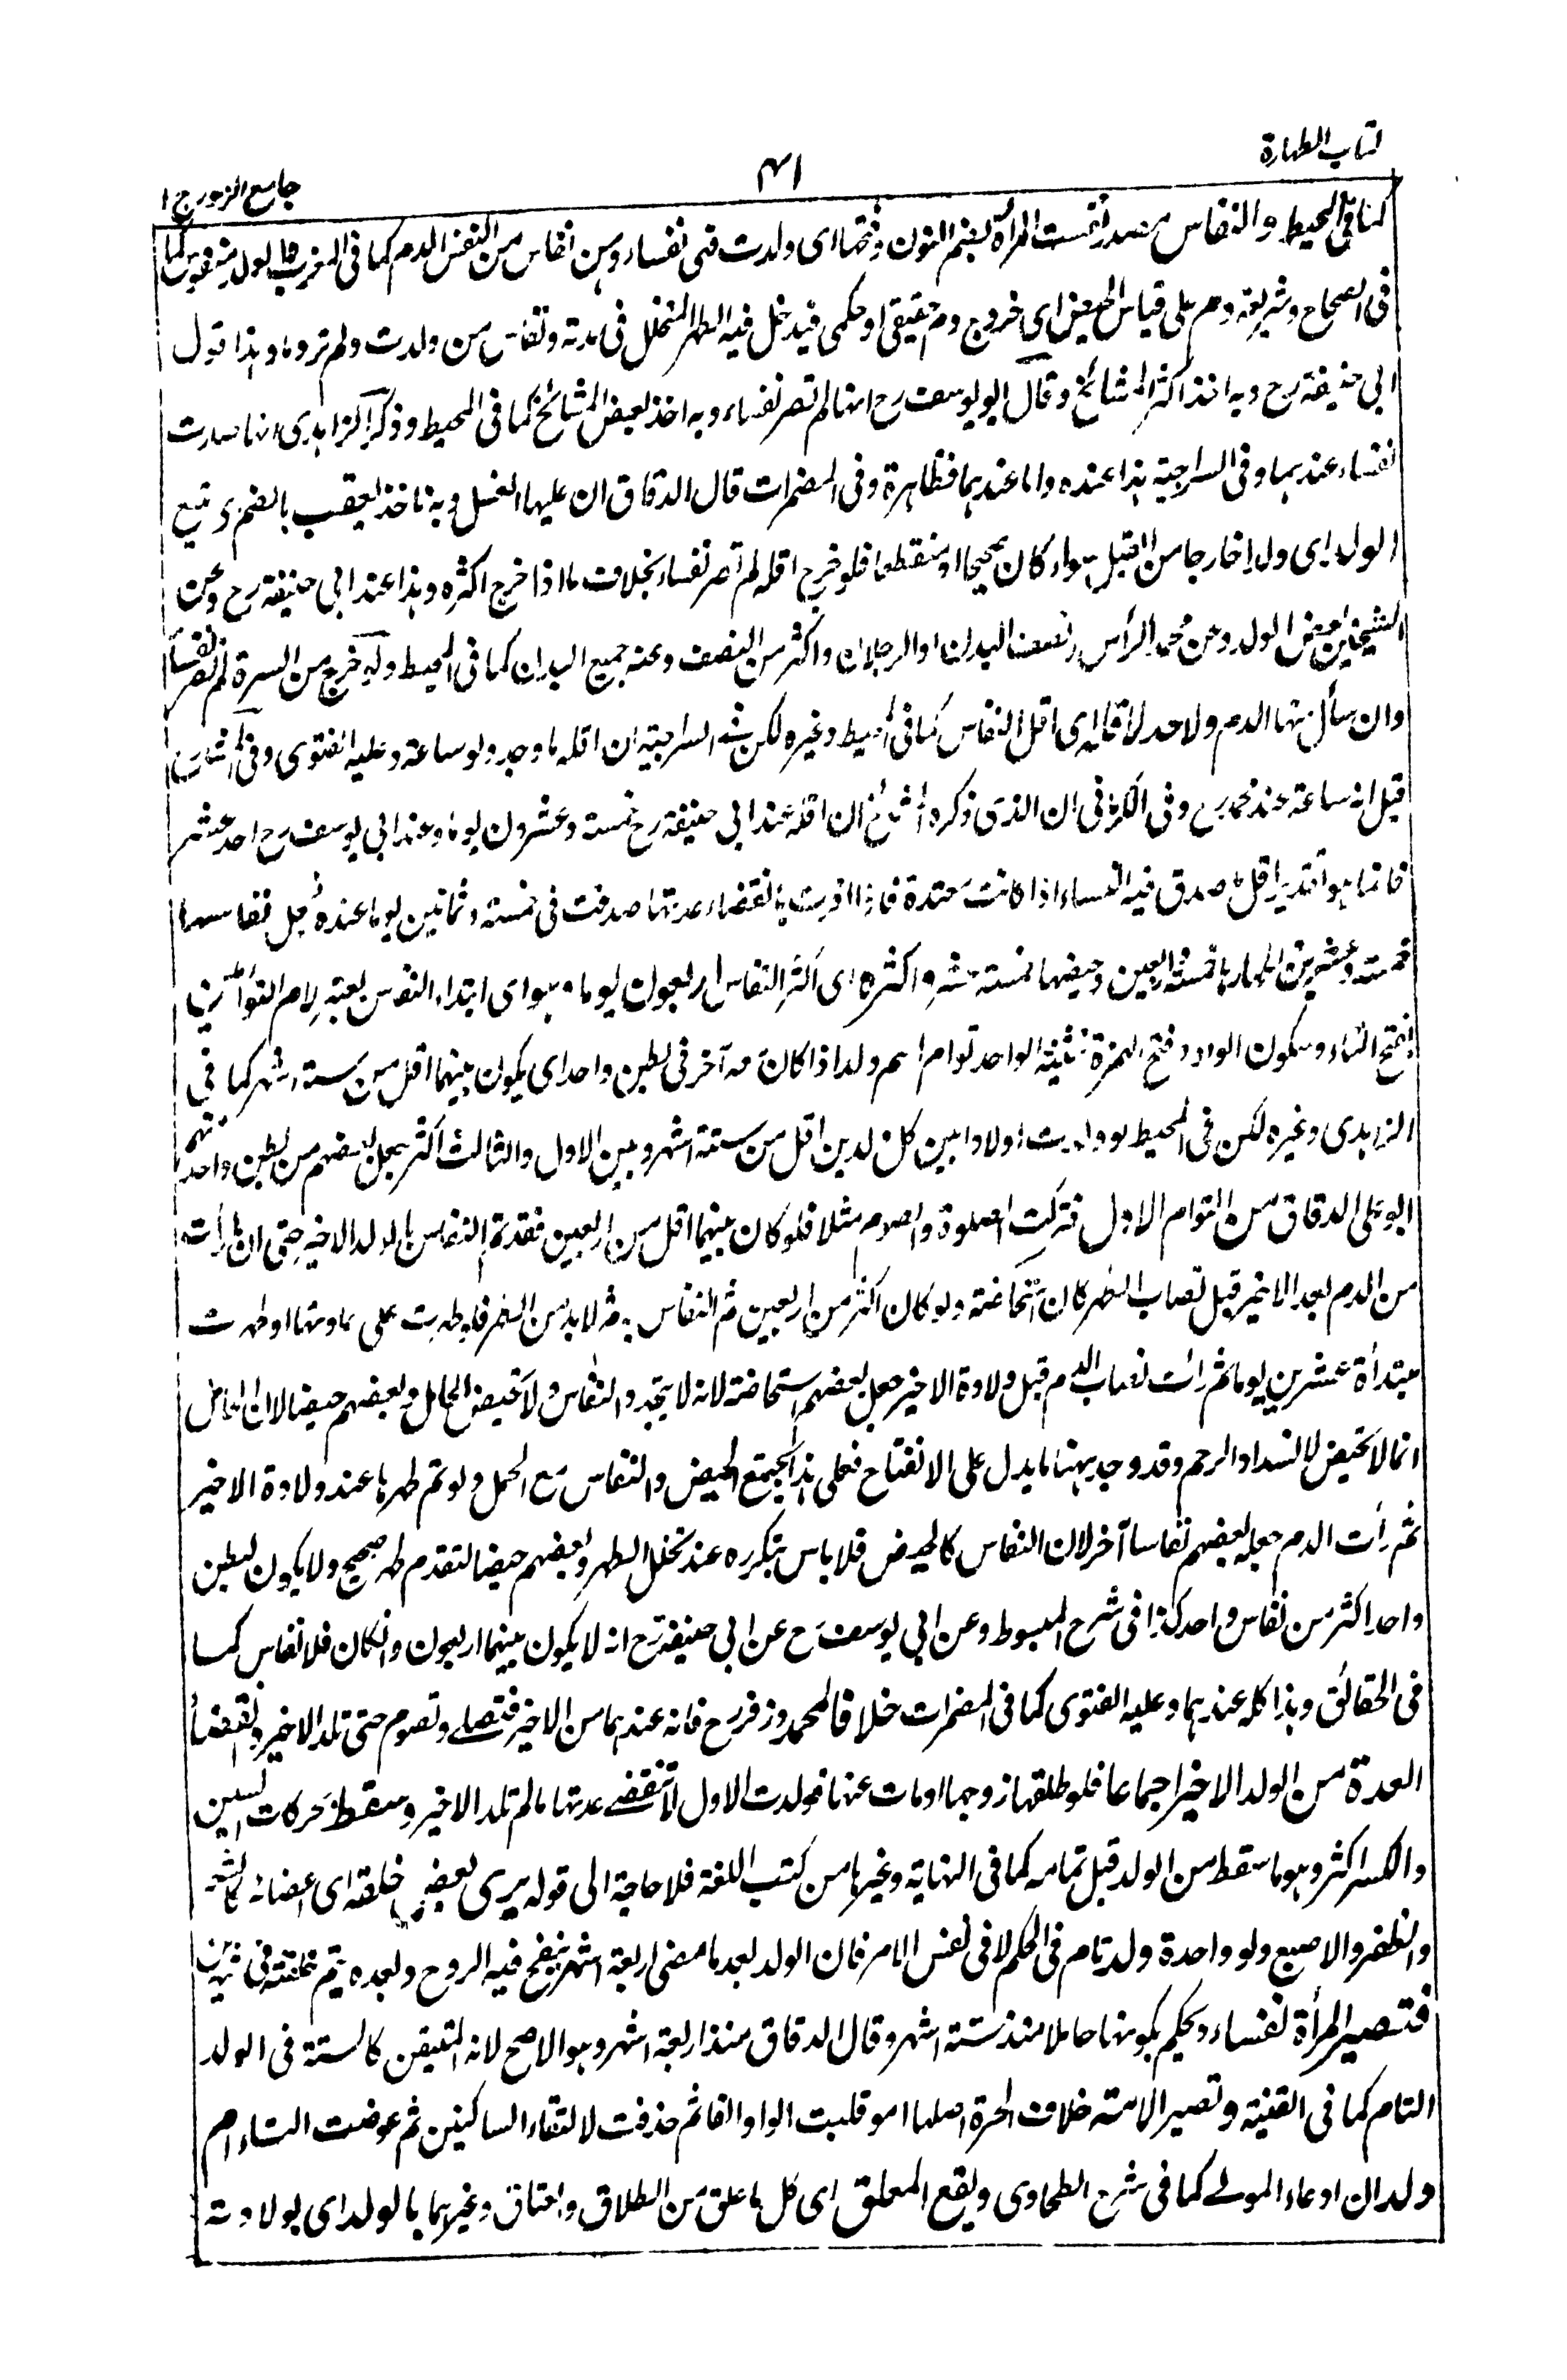 كتاب الطهارة
٤١
جامع الرموز ج ١
كذا في المحيط والنفاس مصدر نفست المرأة بضم النون وفتحها اى ولدت فهى نفساء وهن نفاس من النفس الدم كما في المغرب والولد منفوس كما
في الصحاح وشريعة دم على قياس الحيض اى خروج دم حقيقى او حكمى فيدخل فيه الطهر المتخلل في مدته ونفاس من ولدت ولم تر دما وهذا قول
ابى حنيفة رح وبه اخذ اكثر المشائخ وقال ابو يوسف رح انها لم تصر نفساء وبه اخذ بعض المشائخ كما في المحيط وذكر الزاهدى انها صارت
نفساء عندهما وفي السراجية هذا عنده واما عندهما فظاهرة وفي المضمرات قال الدقاق ان عليها الغسل وبه ناخذ يعقب بالضم اى يتبع
الولد اى ولدا خارجا من القبل سواء كان صحيحا او منقطعا فلو خرج اقله لم تصر نفساء بخلاف ما اذا خرج اكثره وهذا عند ابى حنيفة رح وعن
الشيخين بعض الولد وعن محمد الرأس ونصف البدن او الرجلان واكثر من النصف وعنه جميع البدن كما في المحيط ولو خرج من السرة لم تصر نفساء
وان سأل منها الدم ولا حد لاقله اى اقل النفاس كما في المحيط وغيره لكن في السراجية ان اقله ما وجد ولو ساعة وعليه الفتوى وفي
قيل انه ساعة عند محمد رح وفي الكرمانى ان الذى ذكره المشائخ ان اقله عند ابى حنيفة رح خمسة وعشرون يوما وعند ابى يوسف رح احد عشر
فانما هو تقدير اقل ما صدق فيه النساء اذا كانت معتدة فاذا اقرت بانقضاء عدتها صدقت في خمسة وثمانين يوما عنده بجعل نفاسها
خمسة وعشرين واكثره اى اكثر النفاس اربعون يوما وهو اى ابتداء النفاس يعتبر لام التوأمين
بفتح التاء وسكون الواو وفتح الهمزة تثنية الواحد توأم اسم ولد اذا كان معه آخر في بطن واحد اى يكون بينهما اقل من ستة اشهر كما في
الزاهدى وغيره لكن في المحيط لو ولدت اولادا بين كل ولدين اقل من ستة اشهر وبين الاول والثالث اكثر يجعل بعضهم من بطن واحد منهم
ابو على الدقاق من التوأم الاول فتركت الصلوة والصوم مثلا فلو كان بينهما اقل من اربعين فقد تم النفاس بالولد الاخير حتى ان ما رأت
من الدم بعد الاخير قبل نصاب الطهر كان استحاضة ولو كان اكثر من اربعين تم النفاس به ثم لا بد من الطهر فلو طهرت على عادتها او طهرت
مبتدأة عشرين يوما ثم رأت نصاب الدم قبل ولادة الاخير جعل بعضهم استحاضة لانه لا يتجدد النفاس ولا تحيض الحامل وبعضهم حيضا لان الحامل
انما لا تحيض لانسداد الرحم وقد وجد ههنا ما يدل على الانفتاح فعلى هذا يجتمع الحيض والنفاس مع الحمل ولو تم طهرها عند ولادة الاخير
ثم رأت الدم جعله بعضهم نفاسا آخر لان النفاس كالحيض فلا باس بتكرره عند تخلل الطهر وبعضهم حيضا لتقدم طهر صحيح ولا يكون لبطن
واحد اكثر من نفاس واحد كذا في شرح المبسوط وعن ابى يوسف رح عن ابى حنيفة رح انه لا يكون بينهما اربعون وان كان فلا نفاس كما
في الحقائق وهذا كله عندهما وعليه الفتوى كما في المضمرات خلافا لمحمد وزفر رح فانه عندهما من الاخير فتصلى وتصوم حتى تلد الاخير وانقضاء
العدة من الولد الاخير اجماعا فلو طلقها زوجها او مات عنها فولدت الاول لا تنقضى عدتها ما لم تلد الاخير وسقط بحركات السين
والكسر اكثر وهو ما سقط من الولد قبل تمامه كما في النهاية وغيرها من كتب اللغة فلا حاجة الى قوله يرى بعض خلقه اى اعضائه كالشعر
والظفر والاصبع ولو واحدة ولد تام في الحكم لا في نفس الامر فان الولد بعد ما مضى اربعة اشهر ينفخ فيه الروح وبعده يتم خلقته في شهرين
فتصير المرأة نفساء ويحكم بكونها حاملا منذ ستة اشهر وقال الدقاق منذ اربعة اشهر وهو الاصح لانه المتيقن كالستة في الولد
التام كما في القنية وتصير الامة خلاف الحرة اصلها امو قلبت الواو الفا ثم حذفت لالتقاء الساكنين ثم عوضت التاء ام
ولد ان ادعاه المولى كما في شرح الطحاوى ويقع المعلق اى كل ما علق من الطلاق واعتاق وغيرهما بالولد اى بولادته